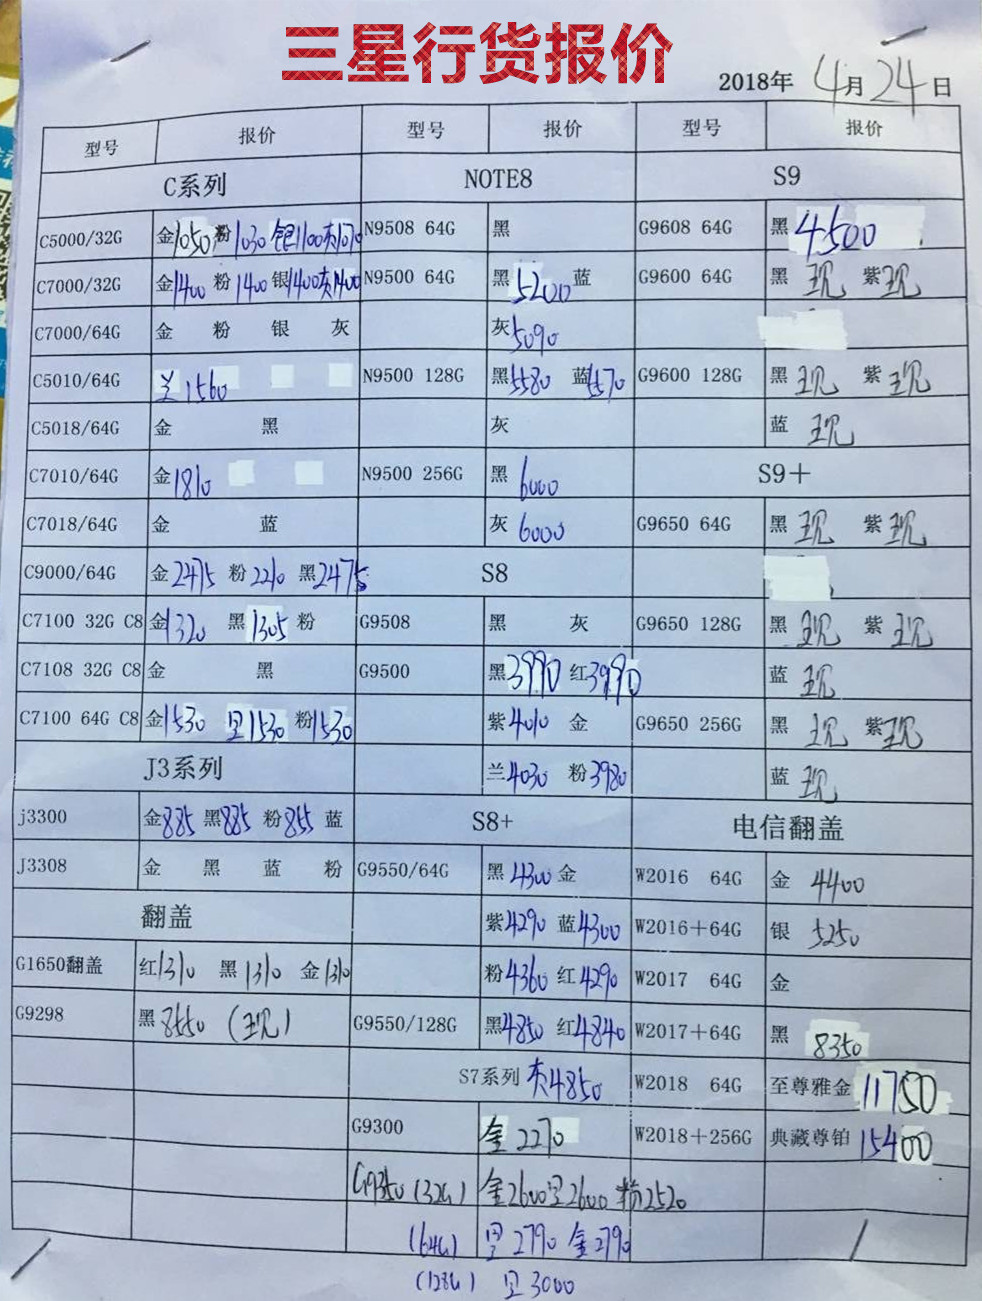 三星行货报价
2018年 4月24日
型号 报价 型号 报价 型号 报价
C系列 NOTE8 S9
C5000/32G 金1050 粉1030 银1100灰1070 N9508 64G 黑 G9608 64G 黑 4500
C7000/32G 金1400 粉1400 银1400灰1400 N9500 64G 黑5200 蓝 G9600 64G 黑 现 紫现
C7000/64G 金 粉 银 灰 灰5090
C5010/64G 1560 N9500 128G 黑5580 蓝5570 G9600 128G 黑 现 紫 现
C5018/64G 金 黑 灰 蓝 现
C7010/64G 金1810 N9500 256G 黑 6000 S9+
C7018/64G 金 蓝 灰 6000 G9650 64G 黑 现 紫 现
C9000/64G 金2475 粉2210 黑2475 S8
C7100 32G C8 金1320 黑1305 粉 G9508 黑 灰 G9650 128G 黑 现 紫 现
C7108 32G C8 金 黑 G9500 黑3990 红3990 蓝 现
C7100 64G C8 金1530 黑1530 粉1530 紫4010 金 G9650 256G 黑 现 紫现
J3系列 兰4030 粉3980 蓝 现
j3300 金885 黑885 粉855 蓝 S8+ 电信翻盖
J3308 金 黑 蓝 粉 G9550/64G 黑4300 金 W2016 64G 金 4400
翻盖 紫4290 蓝4300 W2016+64G 银 5250
G1650翻盖 红1310 黑1310 金1310 粉4360 红4290 W2017 64G 金
G9298 黑8550 (现) G9550/128G 黑4850 红4840 W2017+64G 黑 8350
S7系列 灰4850 W2018 64G 至尊雅金 11750
G9300 金 2270 W2018+256G 典藏尊铂 15400
G9350 (32G) 金2600 黑2600 粉2520
(64G) 黑 2790 金2790
(128G) 黑 3000